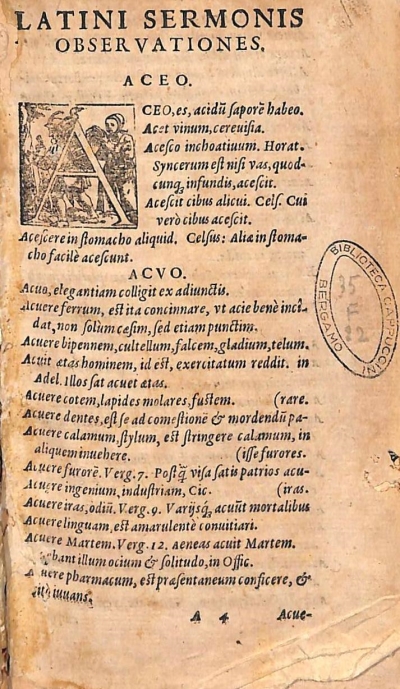 LATINI SERMONIS
OBSERVATIONES.
ACEO.
ACEO, es, acidũ saporẽ habeo.
Acet vinum, cereuisia.
Acesco inchoatiuum. Horat.
Syncerum est nisi vas, quod-
cunq; infundis, acescit.
Acescit cibus alicui. Cels. Cui
verò cibus acescit.
Acescere in stomacho aliquid. Celsus: Alia in stoma-
cho facilè acescunt.
ACVO.
Acuo, elegantiam colligit ex adiunctis.
Acuere ferrum, est ita concinnare, vt acie benè inci-
dat, non solùm cæsim, sed etiam punctim.
Acuere bipennem, cultellum, falcem, gladium, telum.
Acuit ætas hominem, id est, exercitatum reddit. in
Adel. Illos sat acuet ætas.
Acuere cotem, lapides molares, fustem. (rare.
Acuere dentes, est se ad comestionẽ & mordendũ pa-
Acuere calamum, stylum, est stringere calamum, in
aliquem inuehere. (isse furores.
Acuere furorẽ. Verg. 7. Postq̃ visa satis patrios acu-
Acuere ingenium, industriam, Cic. (iras.
Acuere iras, odiũ. Verg. 9. Varijsq; acuũt mortalibus
Acuere linguam, est amarulentè conuitiari.
Acuere Martem. Verg. 12. Aeneas acuit Martem.
illum ocium & solitudo, in Offic.
Acuere pharmacum, est præsentaneum conficere, &
iuuans.
A 4 Acue-
BIBLIOTECA CAPPUCCINI
BERGAMO
35
F
22